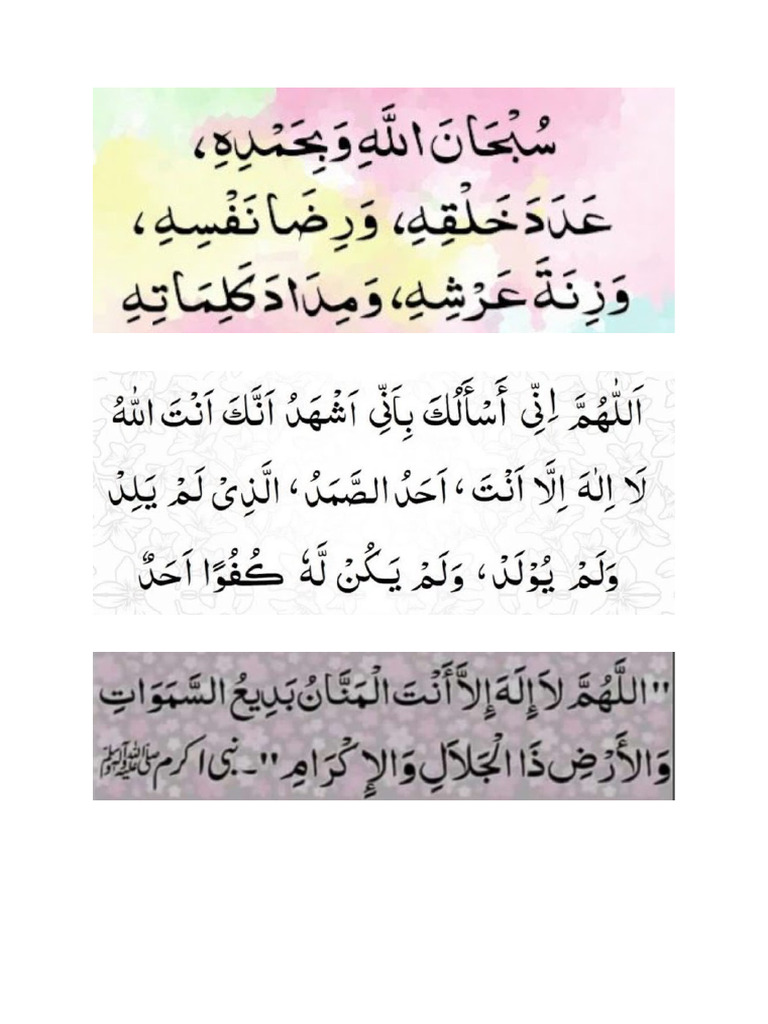 سُبْحَانَ اللَّهِ وَبِحَمْدِهِ،
عَدَدَ خَلْقِهِ، وَرِضَا نَفْسِهِ،
وَزِنَةَ عَرْشِهِ، وَمِدَادَ كَلِمَاتِهِ
اَللّٰهُمَّ اِنِّي أَسْأَلُكَ بِاَنِّي اَشْهَدُ اَنَّكَ اَنْتَ اللّٰهُ
لَا اِلٰهَ اِلَّا اَنْتَ، اَحَدُ الصَّمَدُ، الَّذِىْ لَمْ يَلِدْ
وَلَمْ يُوْلَدْ، وَلَمْ يَكُنْ لَّهٗ كُفُوًا اَحَدٌ
"اللَّهُمَّ لاَ إِلَهَ إِلاَّ أَنْتَ الْمَنَّانُ بَدِيعُ السَّمَوَاتِ
وَالأَرْضِ ذَا الْجَلاَلِ وَالإِكْرَامِ"۔ نبی اکرم ﷺ